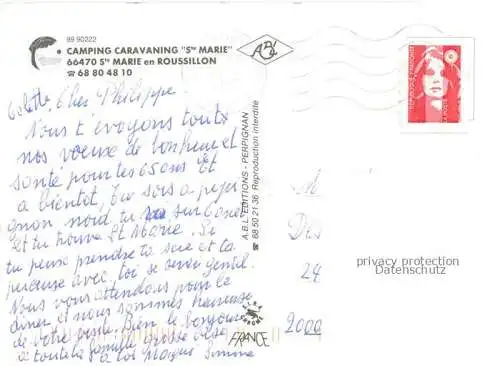 99 90222
CAMPING CARAVANING "Ste MARIE"
66470 Ste MARIE en ROUSSILLON
☎ 68 80 48 10
ABL
RÉPUBLIQUE FRANÇAISE
A.B.L. EDITIONS - PERPIGNAN
☎ 68 50 21 36 Reproduction interdite
Colette Cher Philippe.
Nous t'envoyons toute
nos voeux de bonheur et
santé pour tes 65 ans Et
a bientot, tu sors a perpi
gnon nord tu sur Canet
et tu trouve St Marie. Si
tu peux prendre ta scie et la
perceuse avec toi se serai gentil.
Nous vous attendons pour le
diner et nous sommes heureuse
de votre visite. Bien le bonjour
de toute la famille
a toi Simone
M
Des
24
2000
privacy protection
Datenschutz
FRANCE